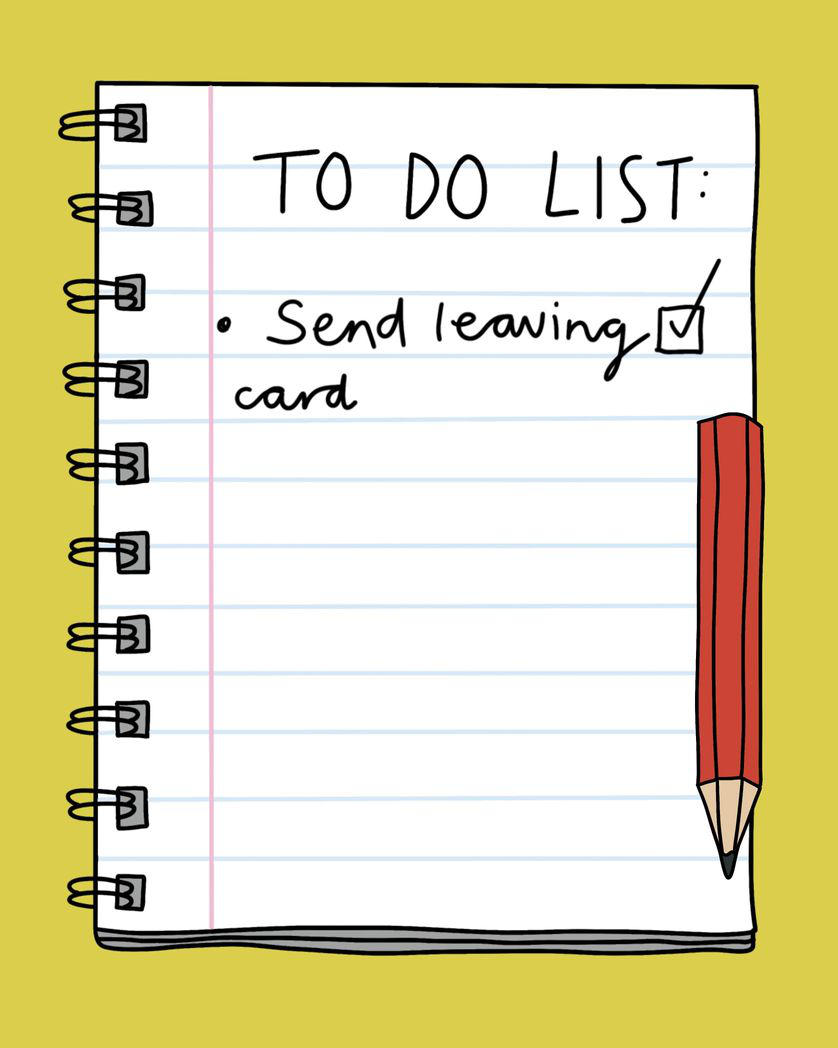 TO DO LIST:
• Send leaving
card